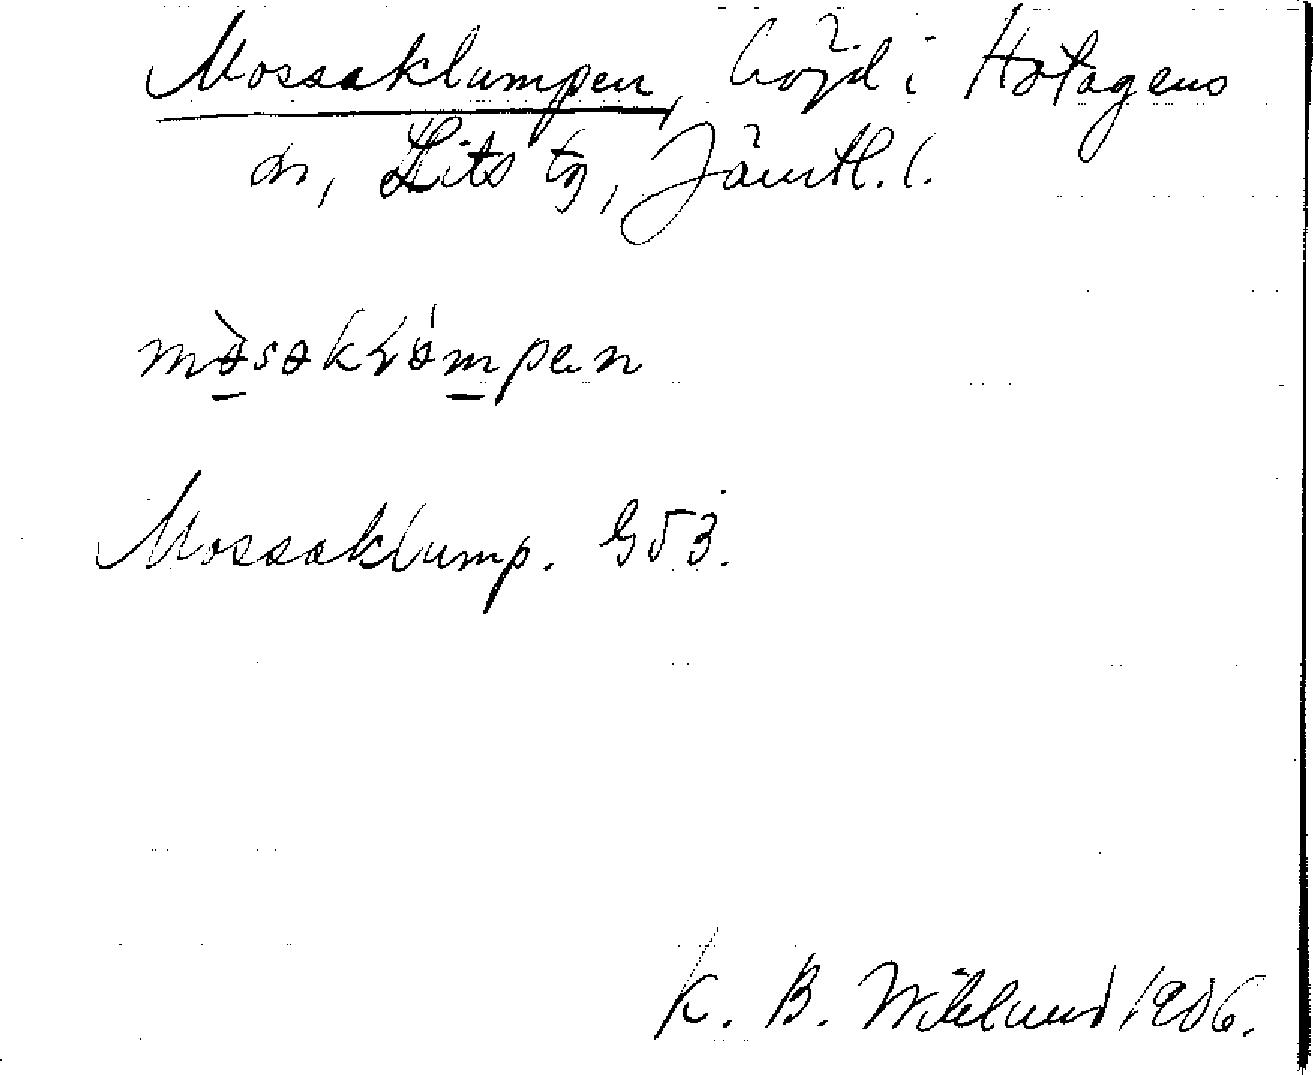 Mossaklumpen, höjd i Hotagens
sn, Lits tg, Jämtl. l.
Mossaklump. G53.
K. B. Wiklund 1906.